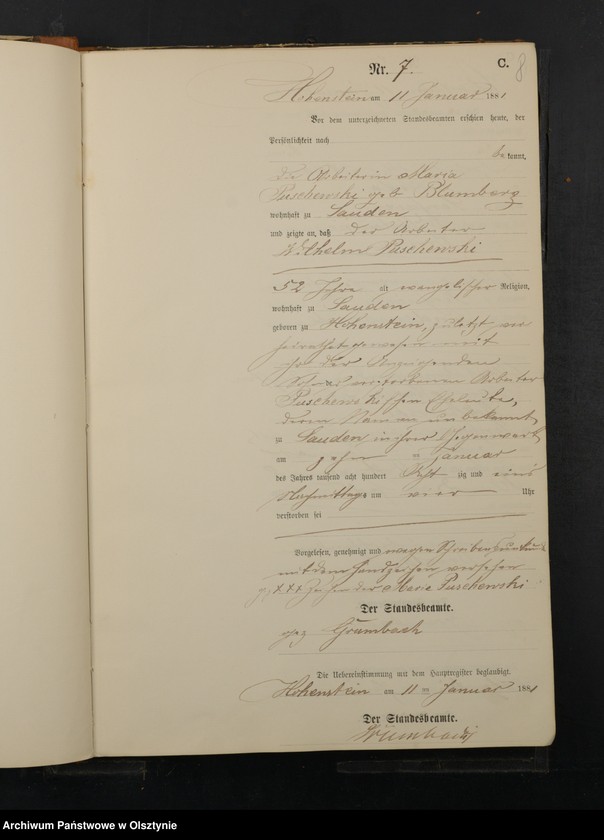 Nr. 7.
C.
8
Hohenstein am 11 Januar 1881
Vor dem unterzeichneten Standesbeamten erschien heute, der
Persönlichkeit nach
bekannt,
die Arbeiterin Maria
Puschewski geb Blumberg
wohnhaft zu Sauden
und zeigte an, daß der Arbeiter
Wilhelm Puschewski
52 Jahre alt evangelischer Religion,
wohnhaft zu Sauden
geboren zu Hohenstein, zuletzt ver
heirathet gewesen mit
der Anzeigenden
verstorbenen Arbeiter
Puschewskischen Eheleute,
deren Namen unbekannt
zu Sauden in ihrer Gegenwart
am zehn ten Januar
des Jahres tausend acht hundert acht zig und eins
Nachmittags um vier Uhr
verstorben sei
Vorgelesen, genehmigt und wegen Schreibensunkunde
mit dem Handzeichen versehen
gez +++ Zeichen der Maria Puschewski
Der Standesbeamte.
gez Grumbach
Die Uebereinstimmung mit dem Hauptregister beglaubigt.
Hohenstein am 11 ten Januar 1881
Der Standesbeamte.
Grumbach
Archiwum Państwowe w Olsztynie